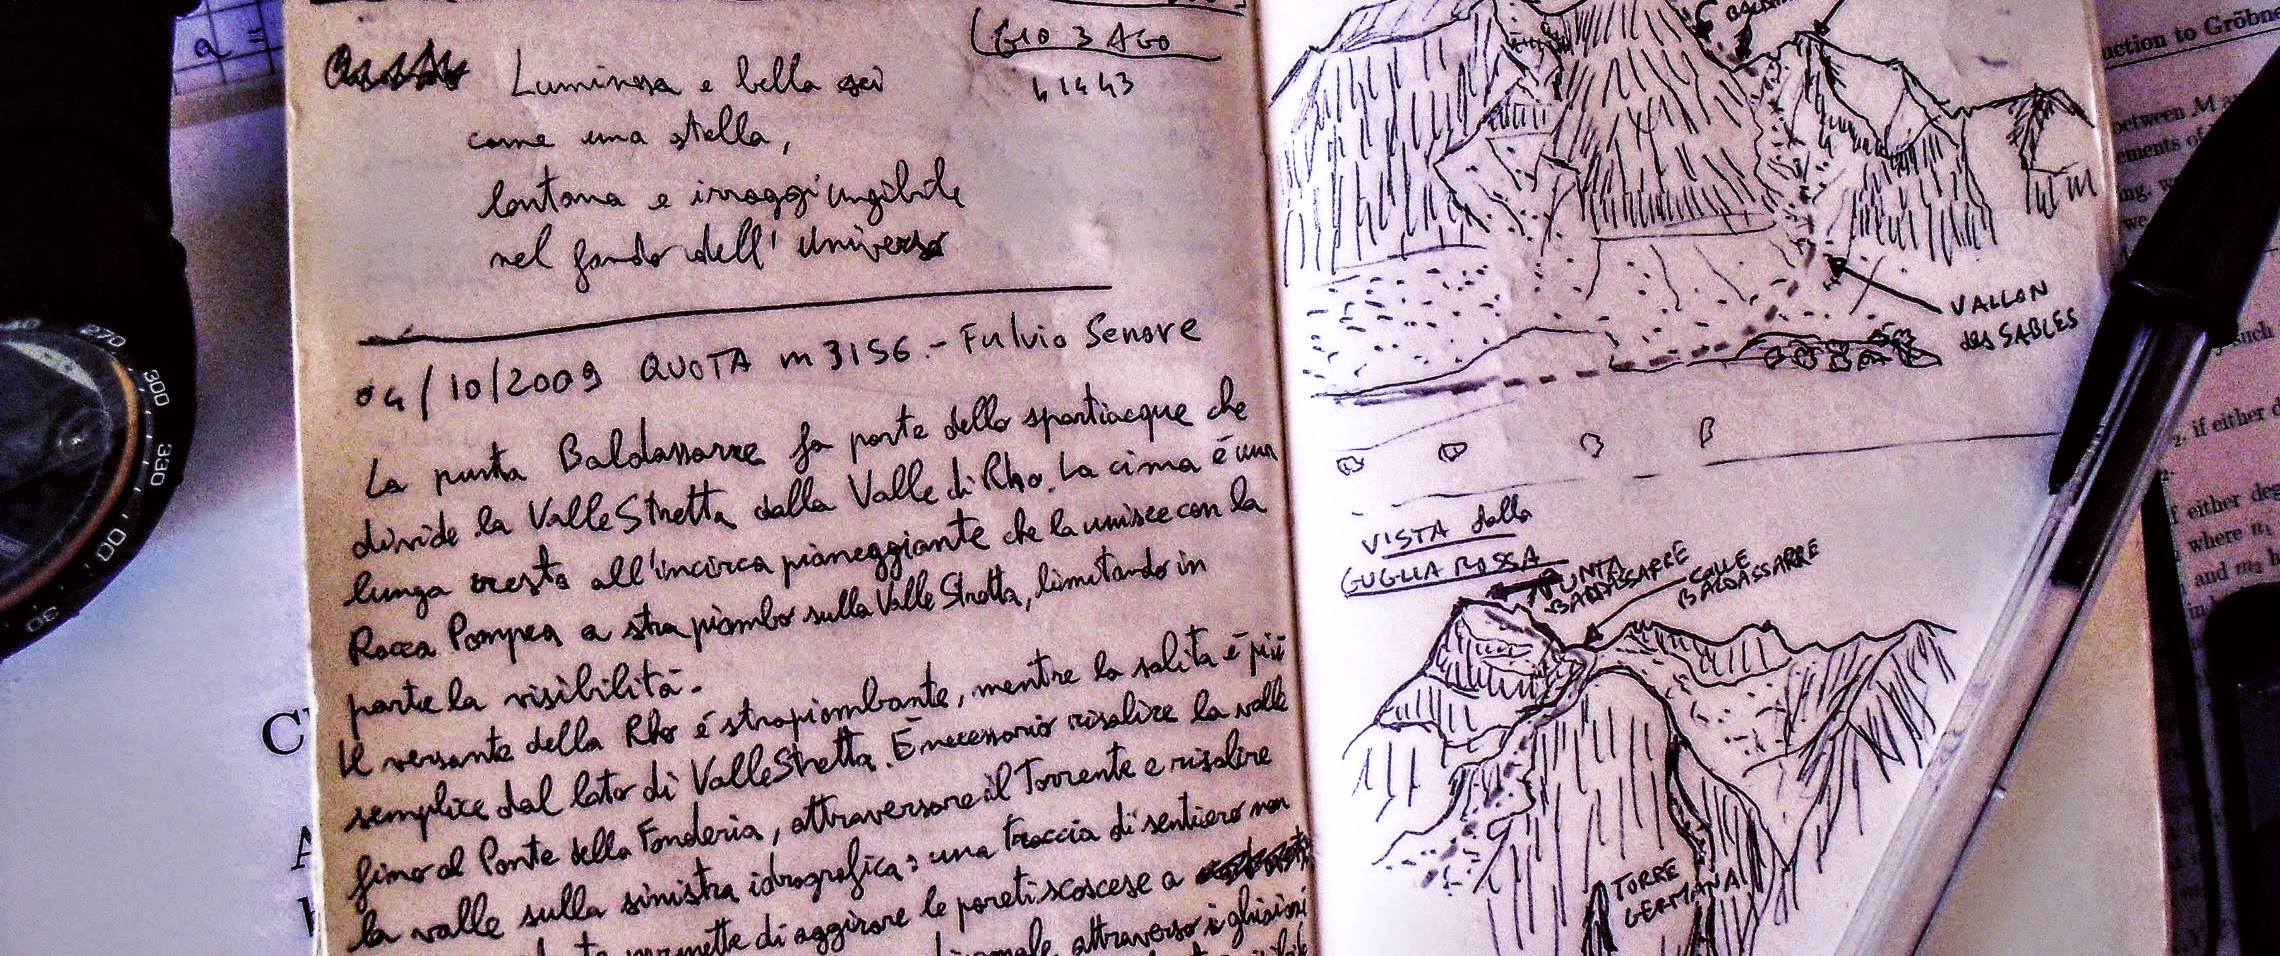 GIO 3 AGO
41443
Luminosa e bella sei
come una stella,
lontana e irraggiungibile
nel fondo dell'universo
04/10/2009 QUOTA m 3156.- Fulvio Senore
La punta Baldassarre fa parte dello spartiacque che
divide la Valle Stretta dalla Valle di Rho. La cima è una
lunga cresta all'incirca pianeggiante che la unisce con la
Rocca Pompea a strapiombo sulla Valle Stretta, limitando in
parte la visibilità.
Il versante della Rho è strapiombante, mentre la salita è più
semplice dal lato di Valle Stretta. È necessario risalire la valle
fino al Ponte della Fonderia, attraversare il Torrente e risalire
la valle sulla sinistra idrografica: una traccia di sentiero non
permette di aggirare le pareti scoscese a
attraverso i ghiaioni
VALLON
des SABLES
VISTA dalla
GUGLIA ROSSA
PUNTA
BALDASSARRE
COLLE
BALDASSARRE
TORRE
GERMANA
a =
270
300
330
30
uction to Gröbne
between M
ements of
ing. w
we
such
if either d
f either deg
where n₁
and m₂ h